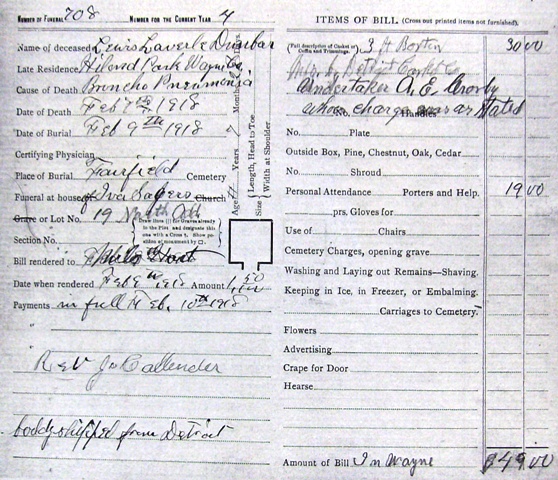 NUMBER OF FUNERAL 708 NUMBER FOR THE CURRENT YEAR 4
Name of deceased Lewis Laverle Dunbar
Late Residence Hiland Park Wayne Co
Cause of Death Broncho Pneumonia
Date of Death Feb 7 1918
Date of Burial Feb 9th 1918
Certifying Physician
Place of Burial Fairfield Cemetery
Funeral at house of Iva Sayers Church
Grave or Lot No. 19 North Add
Section No.
Bill rendered to
Date when rendered Feb 9 1918 Amount
Payments in full Feb. 10th 1918
"
Rev Callender
body shipped from Detroit
Age Years Months Days
Size Length, Head to Toe
Width at Shoulder
Draw lines ( ) for Graves already
in the Plot and designate this
one with a Cross †. Show po-
sition of monument by □.
ITEMS OF BILL. (Cross out printed items not furnished).
(Full description of Casket or Coffin and Trimmings. 3 ft Boxten 30 00
Mfr. by Detroit Casket Co
Undertaker A. E. Crosby
whose charges are as stated
No. Handles
No. Plate
Outside Box, Pine, Chestnut, Oak, Cedar
No. Shroud
Personal Attendance Porters and Help. 19 00
prs. Gloves for
Use of Chairs
Cemetery Charges, opening grave
Washing and Laying out Remains—Shaving.
Keeping in Ice, in Freezer, or Embalming.
Carriages to Cemetery
Flowers
Advertising
Crape for Door
Hearse
Amount of Bill In Wayne $49.00